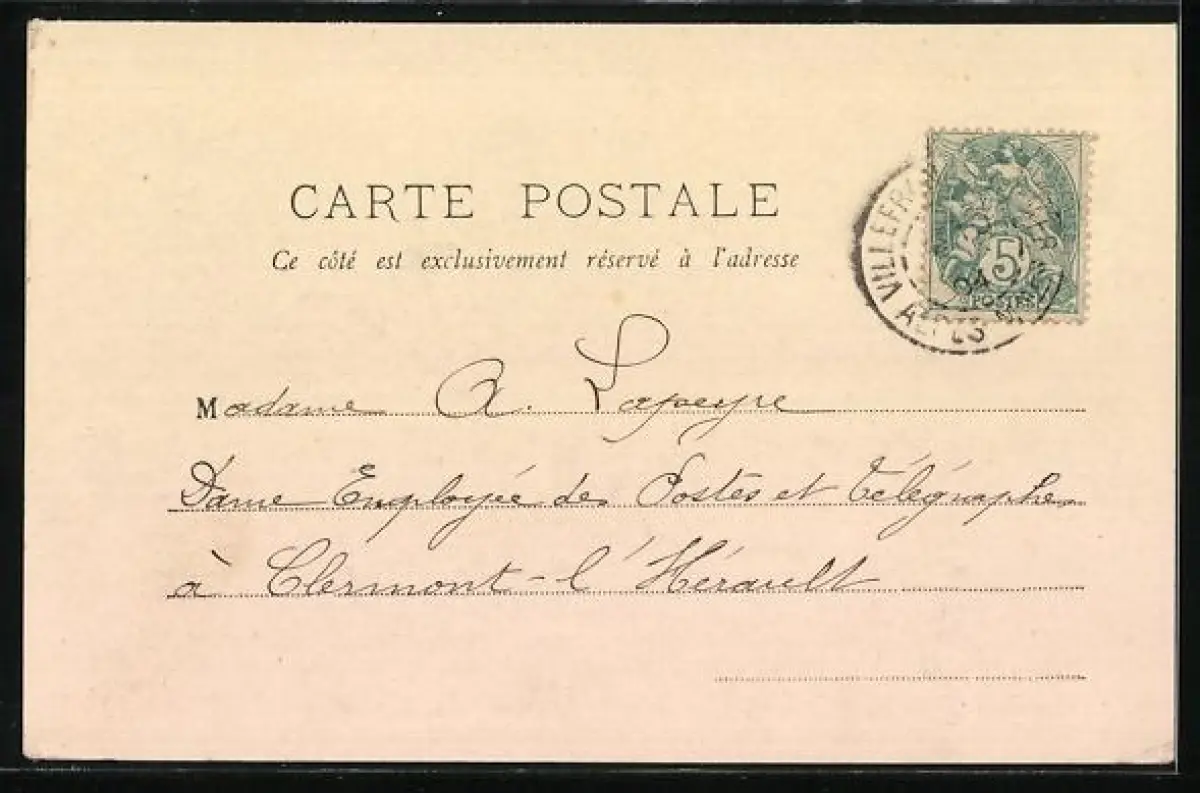 CARTE POSTALE
Ce côté est exclusivement réservé à l'adresse
5
POSTES
VILLEFR
04
Madame A. Lapeyre
Dame Employée des Postes et Télégraphes
à Clermont-l'Hérault